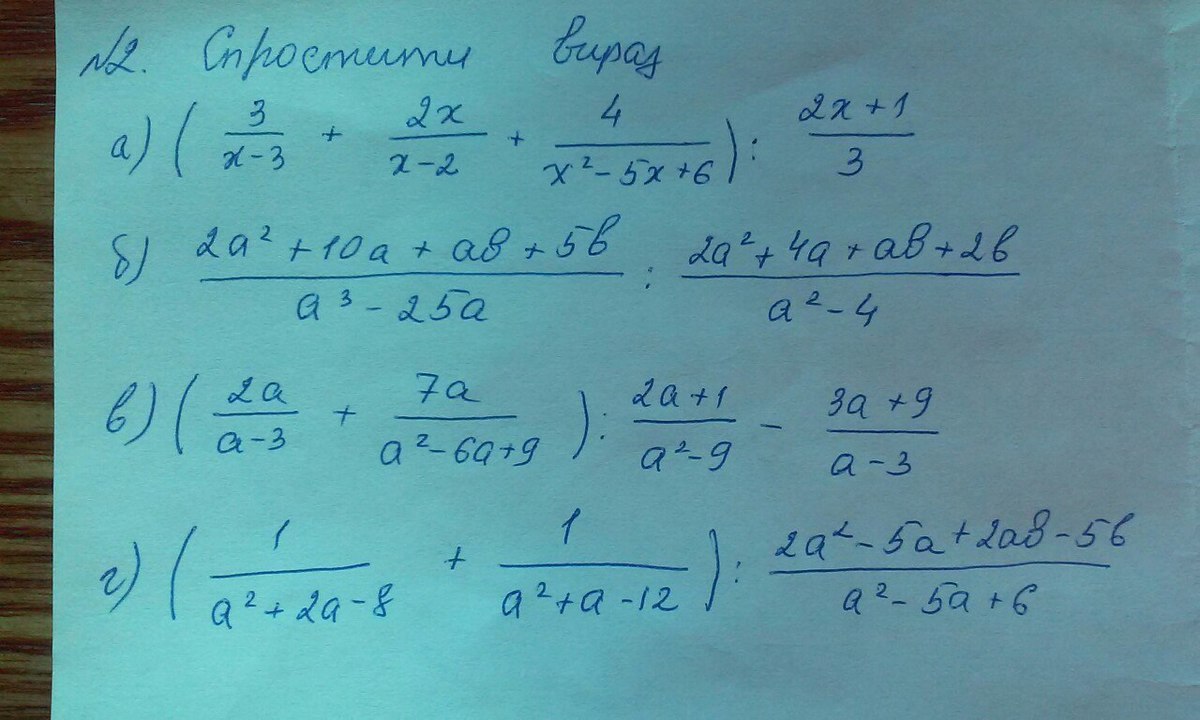 №2. Спростити вираз
а) ( 3/(x-3) + 2x/(x-2) + 4/(x²-5x+6) ) : (2x+1)/3
б) (2a²+10a+aв+5в)/(a³-25a) : (2a²+4a+aв+2в)/(a²-4)
в) ( 2a/(a-3) + 7a/(a²-6a+9) ) : (2a+1)/(a²-9) - (3a+9)/(a-3)
г) ( 1/(a²+2a-8) + 1/(a²+a-12) ) : (2a²-5a+2aв-5в)/(a²-5a+6)